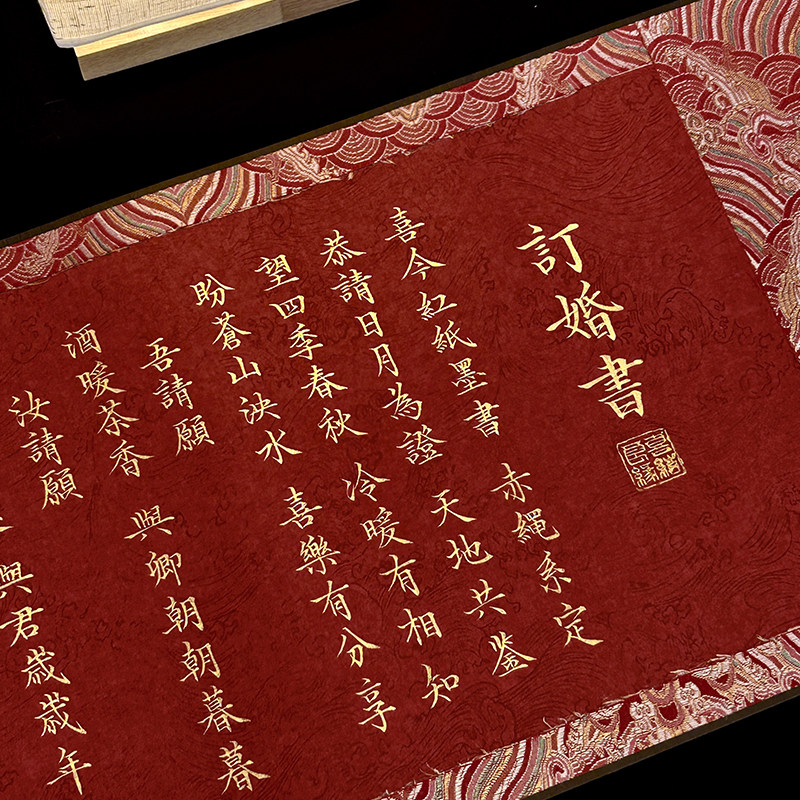 訂婚書
喜今紅紙墨書 赤繩系定
恭請日月為證 天地共鑒
望四季春秋 冷暖有相知
盼蒼山泱水 喜樂有分享
吾請願
與卿朝朝暮暮
酒暖茶香
汝請願
與君歲歲年